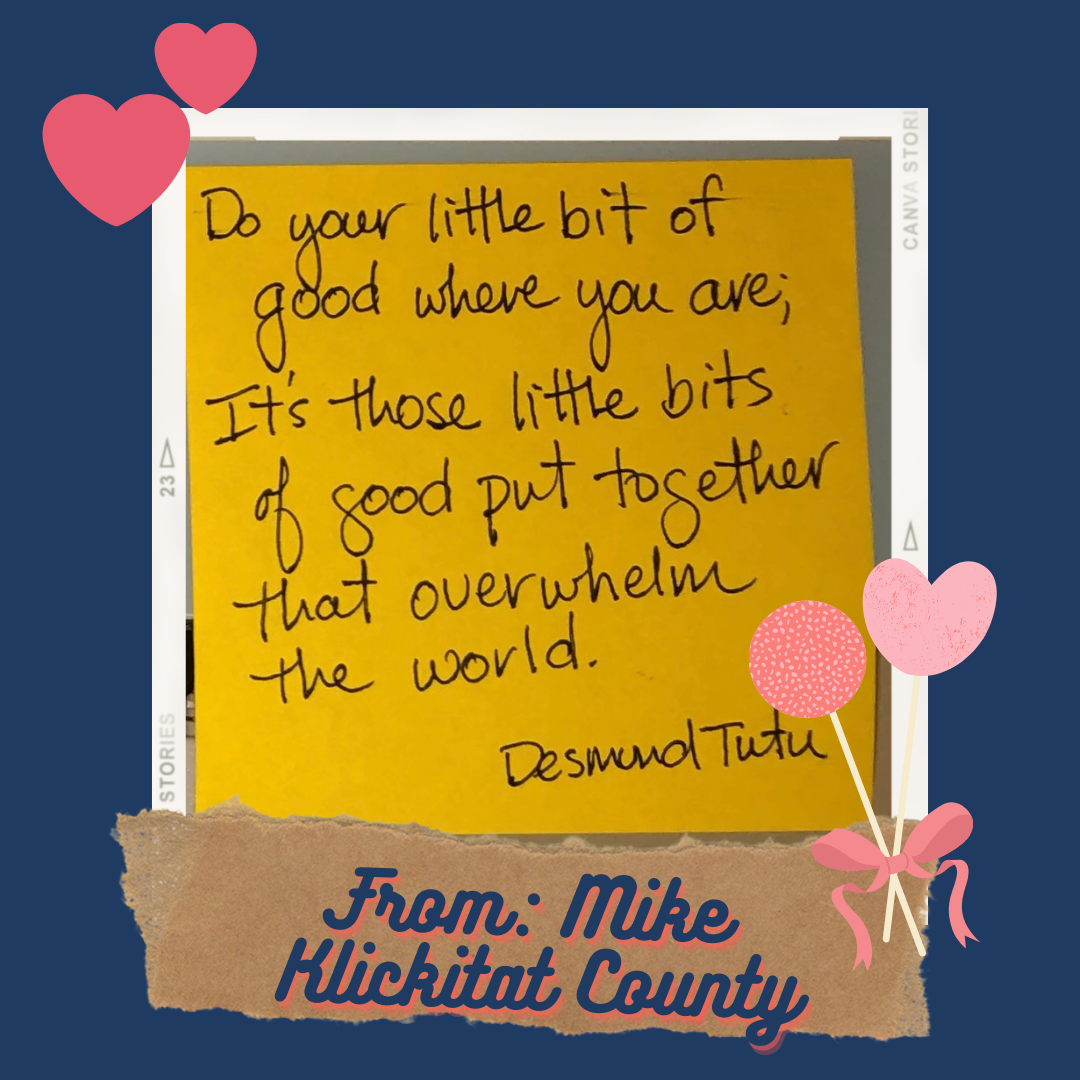 CANVA STORI
Do your little bit of
good where you are;
It's those little bits
of good put together
that overwhelm
the world.
Desmond Tutu
23
STORIES
From: Mike
Klickitat County